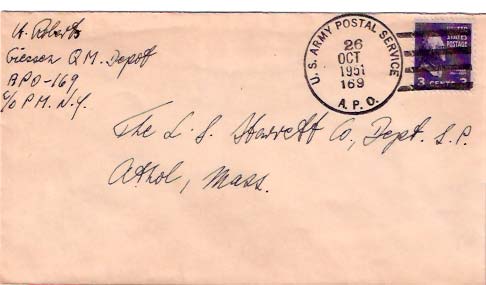 H. Roberts
Giessen Q.M. Depot
APO-169
c/o P.M. N.Y.
U.S. ARMY POSTAL SERVICE
26
OCT
1951
169
A.P.O.
UNITED
STATES
POSTAGE
3 CENTS 3
The L. S. Starrett Co., Dept. S.P.
Athol, Mass.